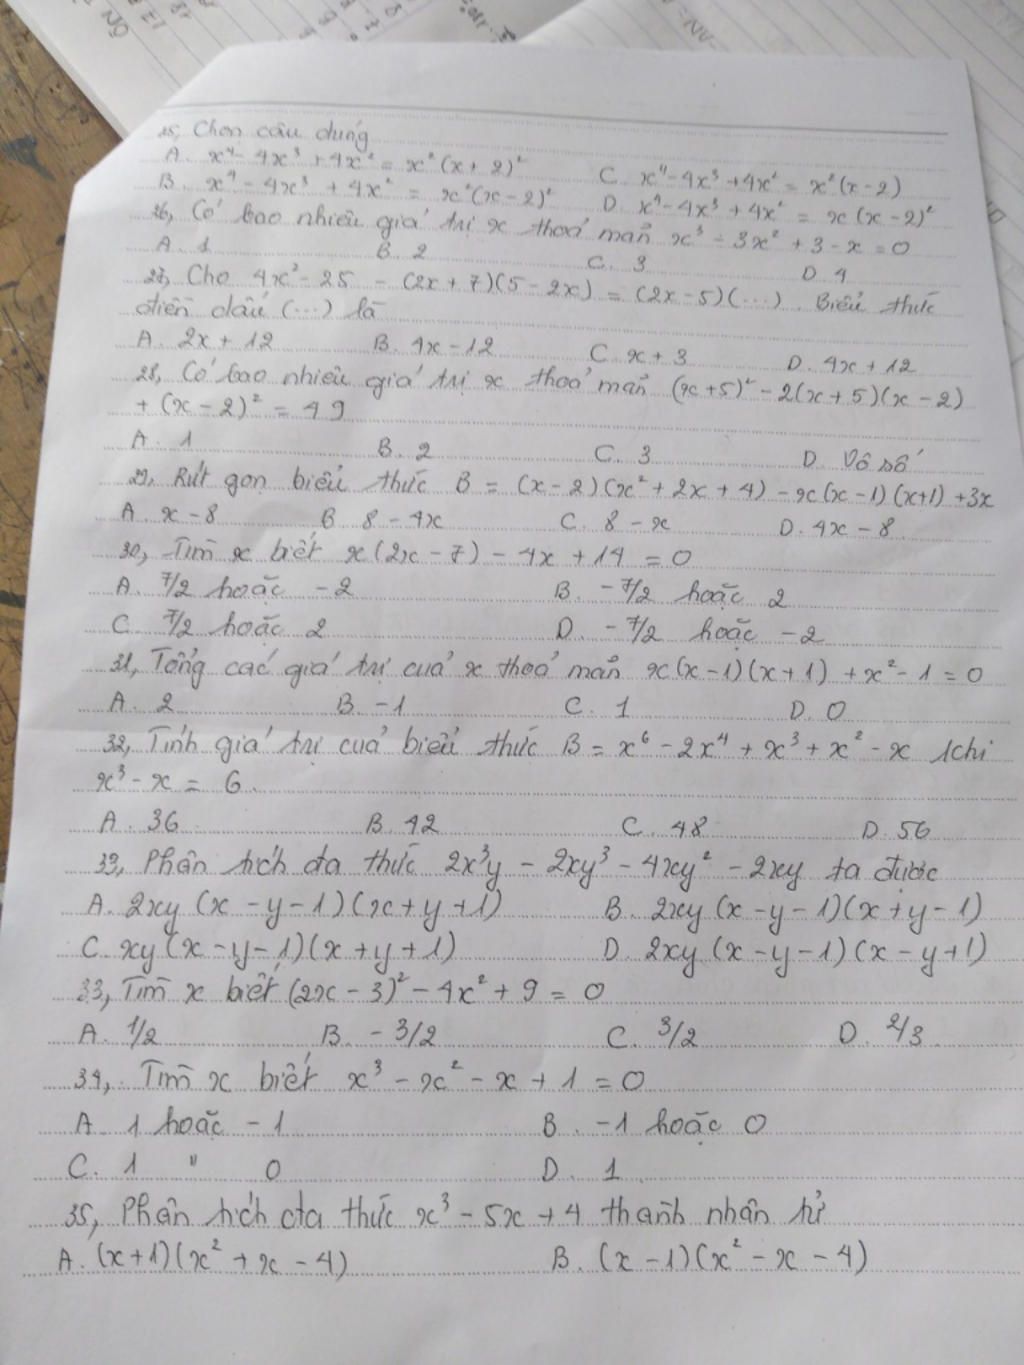 25, Chọn câu đúng
A. x⁴ - 4x³ + 4x² = x²(x + 2)² C. x⁴ - 4x³ + 4x² = x²(x - 2)
B. x⁴ - 4x³ + 4x² = x²(x - 2)² D. x⁴ - 4x³ + 4x² = x(x - 2)²
26, Có bao nhiêu giá trị x thoả mãn x³ - 3x² + 3 - x = 0
A. 1 B. 2 C. 3 D. 4
27, Cho 4x² - 25 - (2x + 7)(5 - 2x) = (2x - 5)(...). Biểu thức
điền dấu (...) là
A. 2x + 12 B. 4x - 12 C. x + 3 D. 4x + 12
28, Có bao nhiêu giá trị x thoả mãn (x + 5)² - 2(x + 5)(x - 2)
+ (x - 2)² = 49
A. 1 B. 2 C. 3 D. Vô số
29, Rút gọn biểu thức B = (x - 2)(x² + 2x + 4) - x(x - 1)(x + 1) + 3x
A. x - 8 B 8 - 4x C. 8 - x D. 4x - 8
30, Tìm x biết x(2x - 7) - 4x + 14 = 0
A. 7/2 hoặc - 2 B. - 7/2 hoặc 2
C. 7/2 hoặc 2 D. - 7/2 hoặc - 2
31, Tổng các giá trị của x thoả mãn x(x - 1)(x + 1) + x² - 1 = 0
A. 2 B. -1 C. 1 D. 0
32, Tính giá trị của biểu thức B = x⁶ - 2x⁴ + x³ + x² - x khi
x³ - x = 6.
A. 36 B. 42 C. 48 D. 56
33, Phân tích đa thức 2x³y - 2xy³ - 4xy² - 2xy ta được
A. 2xy (x - y - 1)(x + y + 1) B. 2xy (x - y - 1)(x + y - 1)
C. xy (x - y - 1)(x + y + 1) D. 2xy (x - y - 1)(x - y + 1)
33, Tìm x biết (2x - 3)² - 4x² + 9 = 0
A. 1/2 B. - 3/2 C. 3/2 D. 2/3
34, Tìm x biết x³ - x² - x + 1 = 0
A. 1 hoặc - 1 B. -1 hoặc 0
C. 1 " 0 D. 1
35, Phân tích đa thức x³ - 5x + 4 thành nhân tử
A. (x + 1)(x² + x - 4) B. (x - 1)(x² - x - 4)